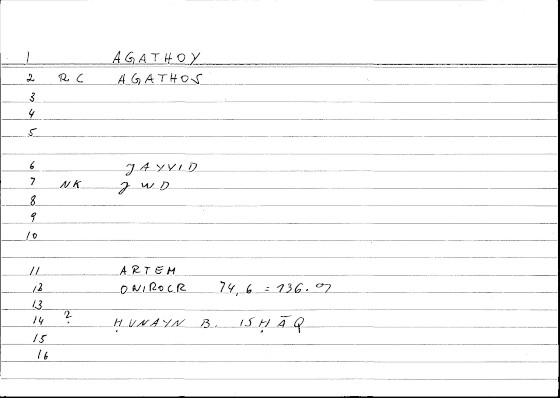 1 AGATHOY
2 RC AGATHOS
3
4
5
6 ǦAYYID
7 NK ǦWD
8
9
10
11 ARTEM
12 ONIROCR 74,6 = 136.
13
14 ? ḤUNAYN B. ISḤĀQ
15
16